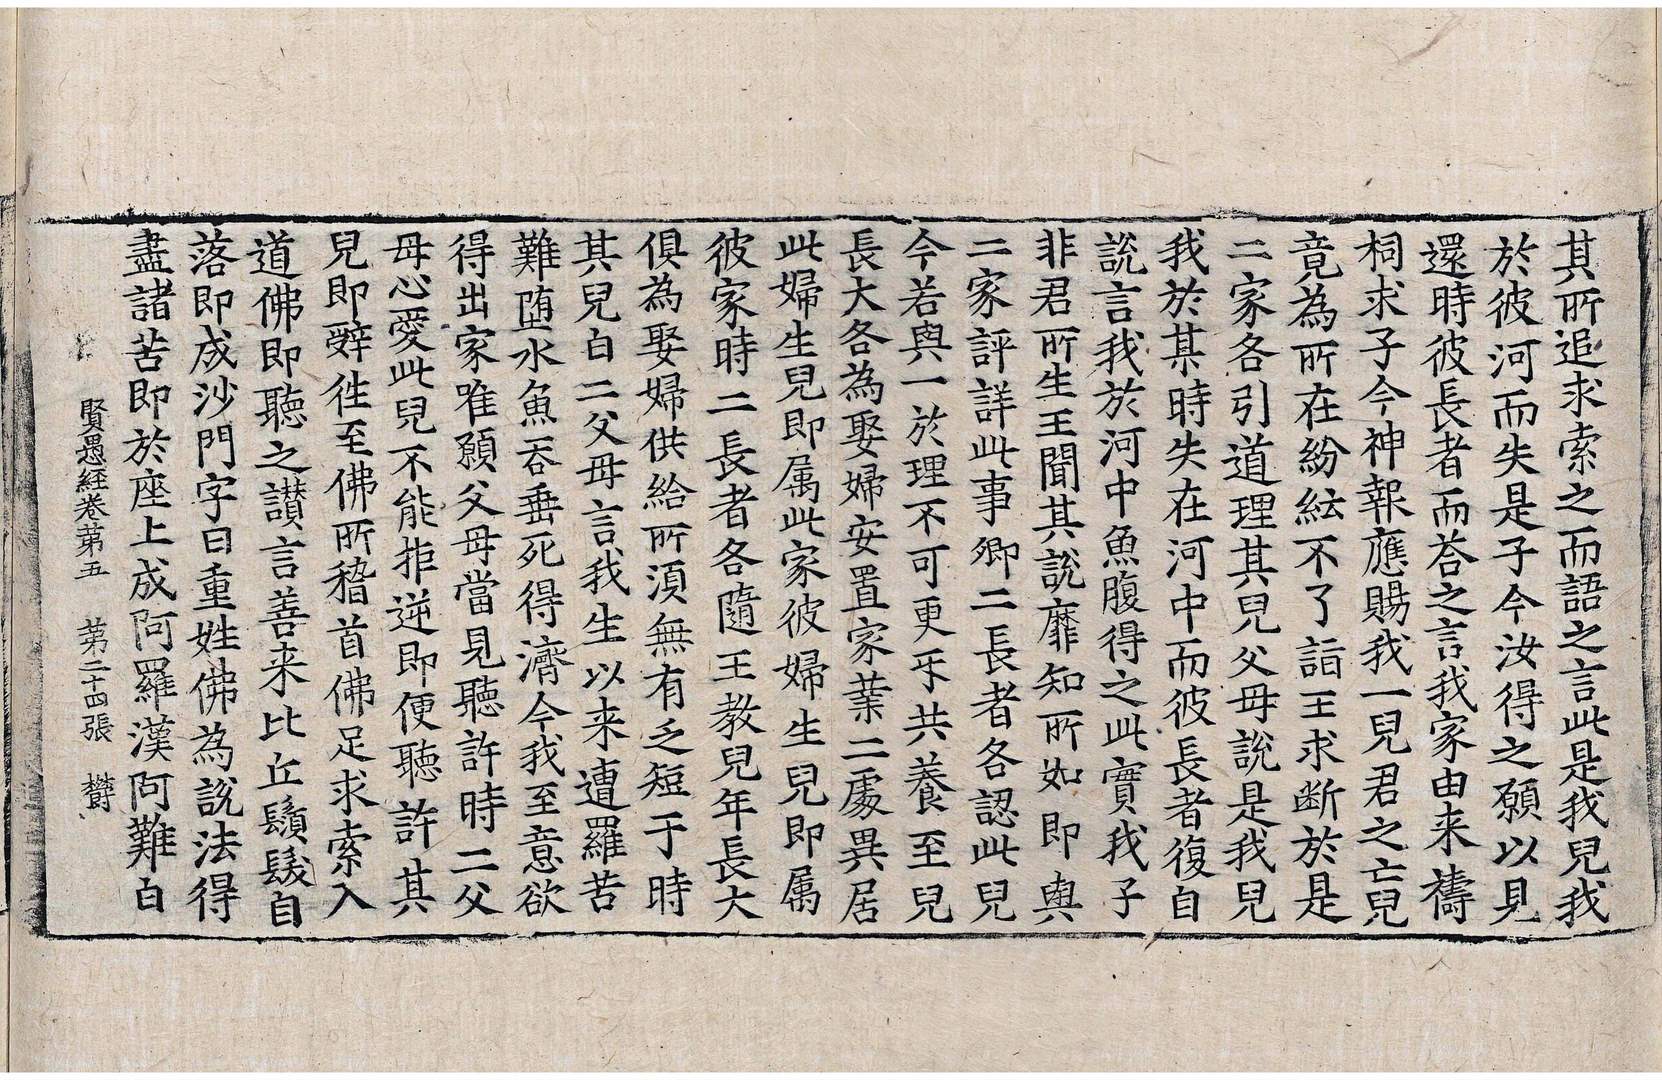 其所追求索之而語之言此是我兒我
於彼河而失是子今汝得之願以見
還時彼長者而荅之言我家由来禱
祠求子今神報應賜我一兒君之亡兒
竟為所在紛紜不了詣王求断於是
二家各引道理其兒父母說是我兒
我於某時失在河中而彼長者復自
說言我於河中魚腹得之此實我子
非君所生王聞其說靡知所如即與
二家評詳此事卿二長者各認此兒
今若與一於理不可更㸦共養至兒
長大各為娶婦安置家業二處異居
此婦生兒即属此家彼婦生兒即属
彼家時二長者各隨王教兒年長大
俱為娶婦供給所湏無有乏短于時
其兒白二父母言我生以来遭羅苦
難堕水魚吞垂死得濟今我至意欲
得出家唯願父母當見聽許時二父
母心愛此兒不能拒逆即便聽許其
兒即辤徃至佛所稽首佛足求索入
道佛即聽之讃言善来比丘鬚髮自
落即成沙門字曰重姓佛為說法得
盡諸苦即於座上成阿羅漢阿難白
賢愚経卷苐五 苐二十四張 欝